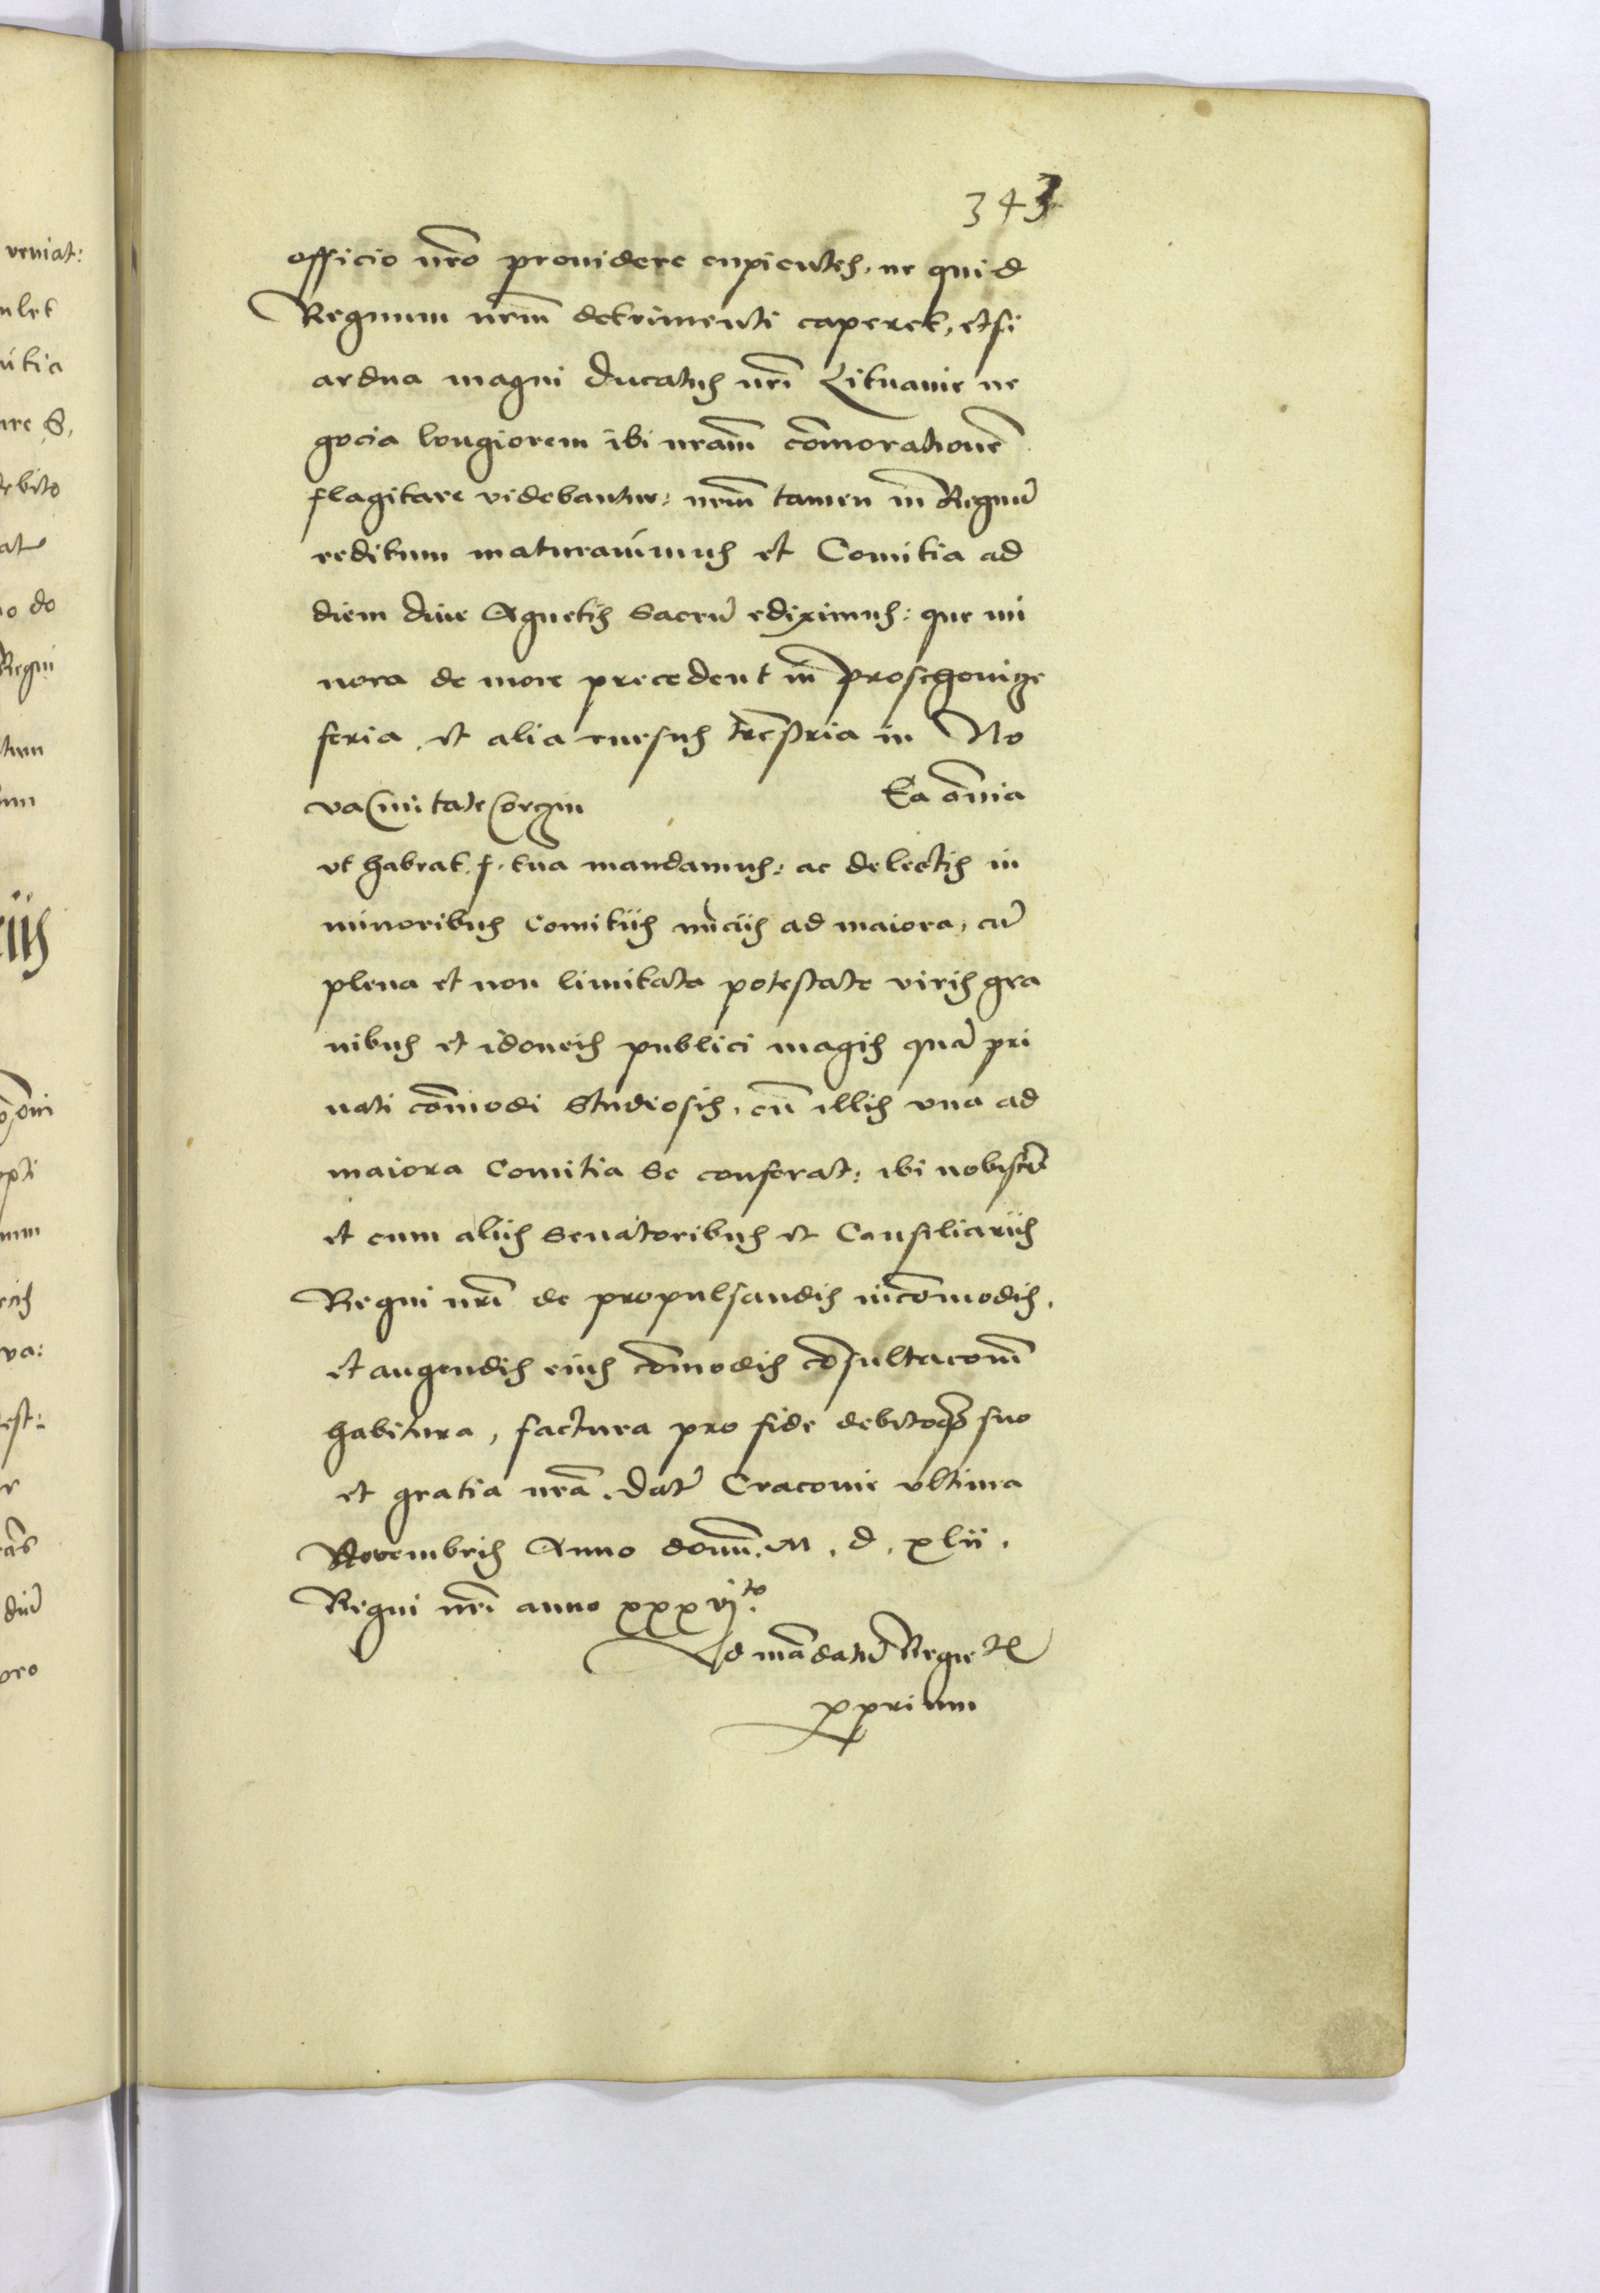 343
officio nr̃o prouidere cupientes, ne quid
Regnum nrm̃ detrimenti caperet, etsi
ardua magni Ducatus nrĩ Lituanie ne
gocia longiorem ibi nram̃ com̃oration̄e
flagitare videbantur: nrm̃ tamen in Regnũ
reditum maturauimus et Comitia ad
diem diue Agnetis Sacrũ ediximus: que mi
nora de more precedent in proschouicze
feria et alia rursus tr̃estria in No
va Ciuitate Corczin Ea om̃ia
vt habeat f. tua mandamus: ac delectis in
minoribus Comitiis nũciis ad maiora, cũ
plena et non limitata potestate viris gra
uibus et idoneis publici magis quã pri
uati com̃odi Studiosis, cũ illis vna ad
maiora Comitia Se conferat: ibi nobiscũ
et cum aliis Senatoribus et Consiliariis
Regni nrĩ de propulsandis incom̃odis,
et augendis eius com̃odis cõsultacoñm
habitura, factura pro fide debitoq₃ suo
et gratia nrã. Datũ Cracouie vltima
Novembris Anno domĩ. M. d. xlii.
Regni nrĩ anno xxxvj to.
Ad mãdatũ Regie
pprium
veniat:
ebito
Regni